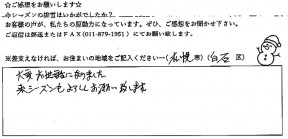 ☆ご感想をお願いします☆
今シーズンの排雪はいかがでしたか？
お客様の声が、私たちの原動力になっています。ぜひ、ご感想をお聞かせ下さい。
ご返信は郵送またはFAX(011-879-1951)にてお願い致します。
※差支えなければ、お住まいの地域をご記入ください…(札幌市)(白石区)
大変お世話に成りました
来シーズンもよろしくお願い致します